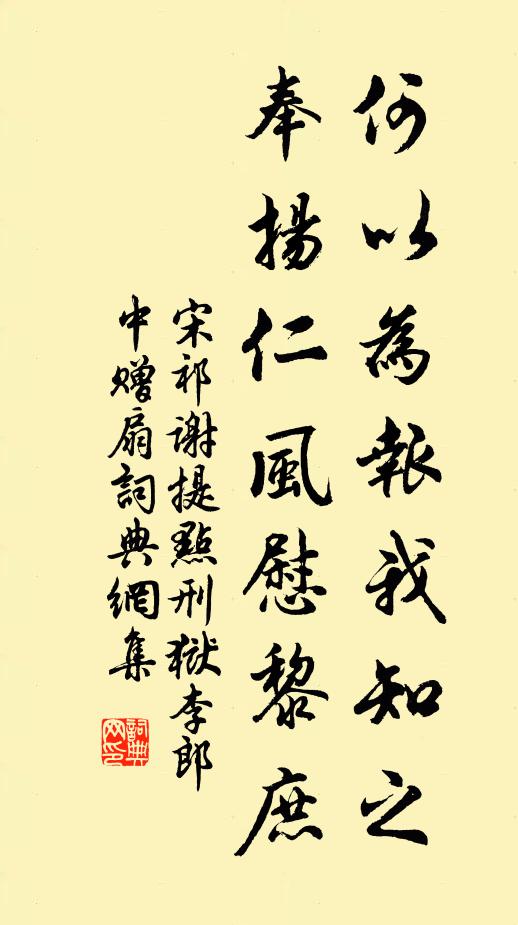 何以為報我知之
奉揚仁風慰黎庶
宋祁謝提點刑獄李郎
中贈扇詞典網集
詞典
网印